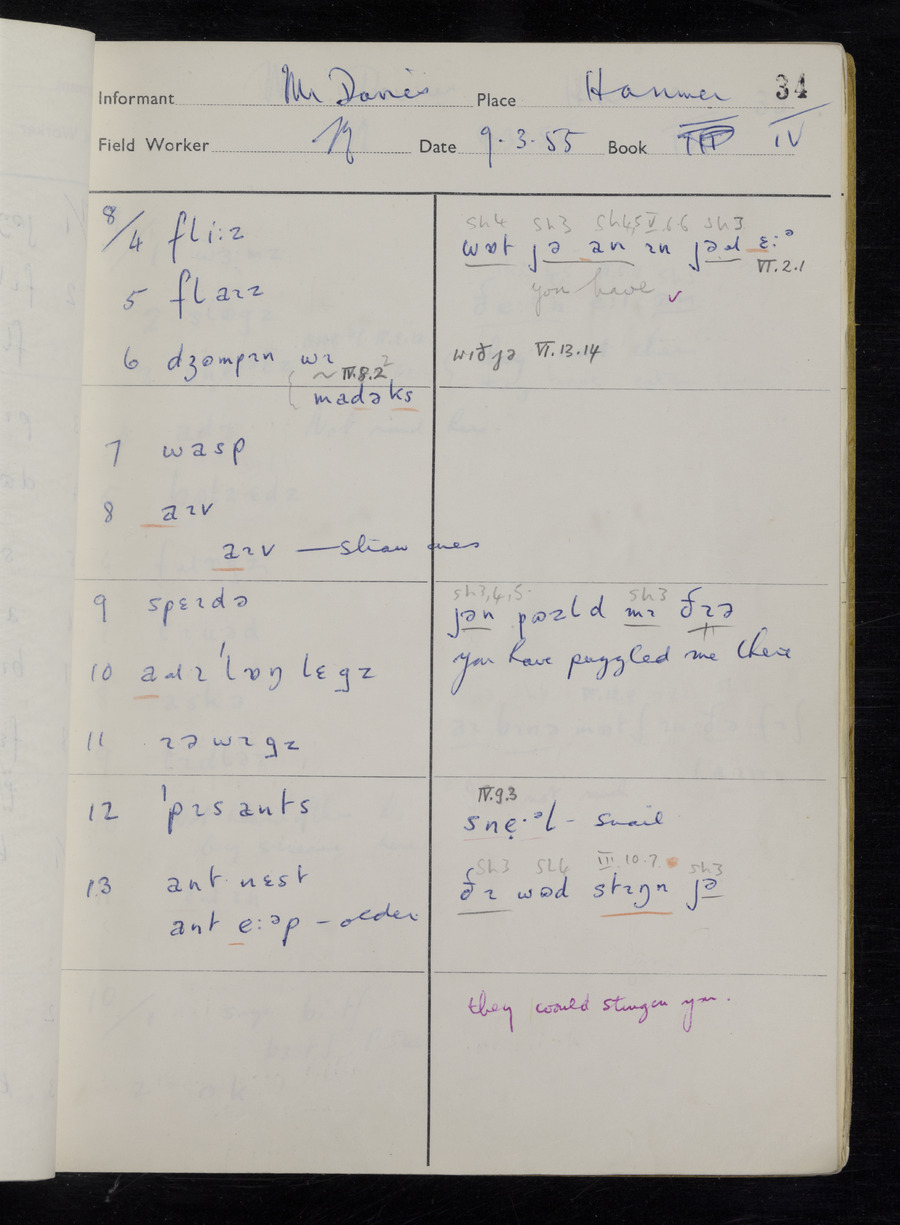 Informant Mr Davies Place Hanmer 34
Field Worker Date 9.3.55 Book III IV
8/4 fliːz
5 flaɪz
6 dʒɒmpɪn wɪ
~ IV.8.2²
madəks
7 wasp
8 aɪv
aɪv — straw ones
9 spɛɪdə
10 adɪˈlɒŋlɛgz
11 ɪəwɪgz
12 ˈpɪsants
13 ant nɛst
ant eːəp – older
sh4 sh3 sh4,5 V.6.6 sh3
wɒt jə an ɪn jəd ɛːᵊ
VI.2.1
you have ✓
wɪðjə VI.13.14
sh3,4,5. sh3
jən pɒzld mɪ ðɪə
you have puggled me there
IV.9.3
snẹ·ᵊl – snail
sh3 sh4 III.10.7 sh3
ðɪ wəd stɪŋn jə
they would stingen you.